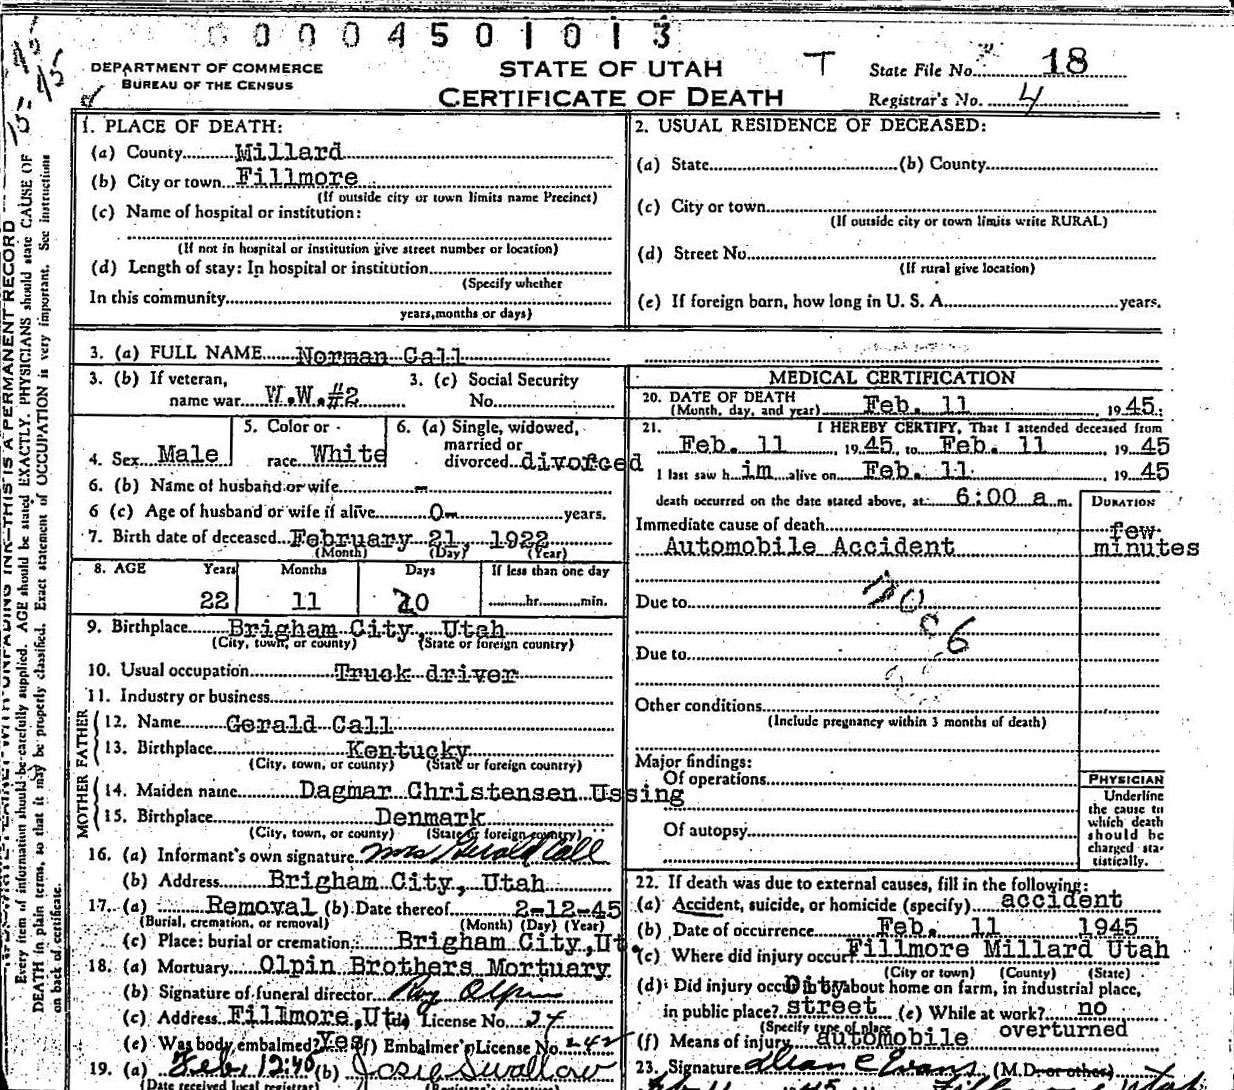 0 0 0 4 5 0 1 0 1 3
DEPARTMENT OF COMMERCE
BUREAU OF THE CENSUS
STATE OF UTAH
CERTIFICATE OF DEATH
T
State File No. 18
Registrar's No. 4
1. PLACE OF DEATH:
(a) County Millard
(b) City or town Fillmore
(If outside city or town limits name Precinct)
(c) Name of hospital or institution:
(If not in hospital or institution give street number or location)
(d) Length of stay: In hospital or institution
(Specify whether
In this community
years, months or days)
2. USUAL RESIDENCE OF DECEASED:
(a) State (b) County
(c) City or town
(If outside city or town limits write RURAL)
(d) Street No.
(If rural give location)
(e) If foreign born, how long in U. S. A. years.
3. (a) FULL NAME Norman Call
3. (b) If veteran,
name war W.W.#2
3. (c) Social Security
No.
4. Sex Male
5. Color or
race White
6. (a) Single, widowed,
married or
divorced divorced
6. (b) Name of husband or wife -
6 (c) Age of husband or wife if alive 0- years.
7. Birth date of deceased February 21, 1922
(Month) (Day) (Year)
8. AGE Years Months Days If less than one day
22 11 20 hr. min.
9. Birthplace Brigham City, Utah
(City, town, or county) (State or foreign country)
10. Usual occupation Truck driver
11. Industry or business
FATHER
12. Name Gerald Call
13. Birthplace Kentucky
(City, town, or county) (State or foreign country)
MOTHER
14. Maiden name Dagmar Christensen Ussing
15. Birthplace Denmark
(City, town, or county) (State or foreign country)
16. (a) Informant's own signature Mrs Gerald Call
(b) Address Brigham City, Utah
17. (a) Removal (b) Date thereof 2-12-45
(Burial, cremation, or removal) (Month) (Day) (Year)
(c) Place: burial or cremation: Brigham City, Ut.
18. (a) Mortuary Olpin Brothers Mortuary
(b) Signature of funeral director Roy Olpin
(c) Address Fillmore, Ut. (d) License No. 24
(e) Was body embalmed? Yes (f) Embalmer's License No. 242
19. (a) Feb. (b) Josie Swallow
(Date received local registrar)
MEDICAL CERTIFICATION
20. DATE OF DEATH
(Month, day, and year) Feb. 11 1945
21. I HEREBY CERTIFY, That I attended deceased from
Feb. 11, 1945, to Feb. 11, 1945
I last saw him alive on Feb. 11. 1945
death occurred on the date stated above, at 6:00 a.m.
DURATION
Immediate cause of death
Automobile Accident
few
minutes
Due to
Due to
Other conditions
(Include pregnancy within 3 months of death)
Major findings:
Of operations
Of autopsy
PHYSICIAN
Underline
the cause to
which death
should be
charged sta-
tistically.
22. If death was due to external causes, fill in the following:
(a) Accident, suicide, or homicide (specify) accident
(b) Date of occurrence Feb. 11 1945
(c) Where did injury occur? Fillmore Millard Utah
(City or town) (County) (State)
(d) Did injury occur in or about home on farm, in industrial place,
in public place? street (e) While at work? no
(Specify type of place)
(f) Means of injury automobile overturned
23. Signature Evans (M.D. or other)
THIS IS A PERMANENT RECORD
Every item of information should be carefully supplied. AGE should be stated EXACTLY. PHYSICIANS should state CAUSE OF
DEATH in plain terms, so that it may be properly classified. Exact statement of OCCUPATION is very important. See instructions
on back of certificate.